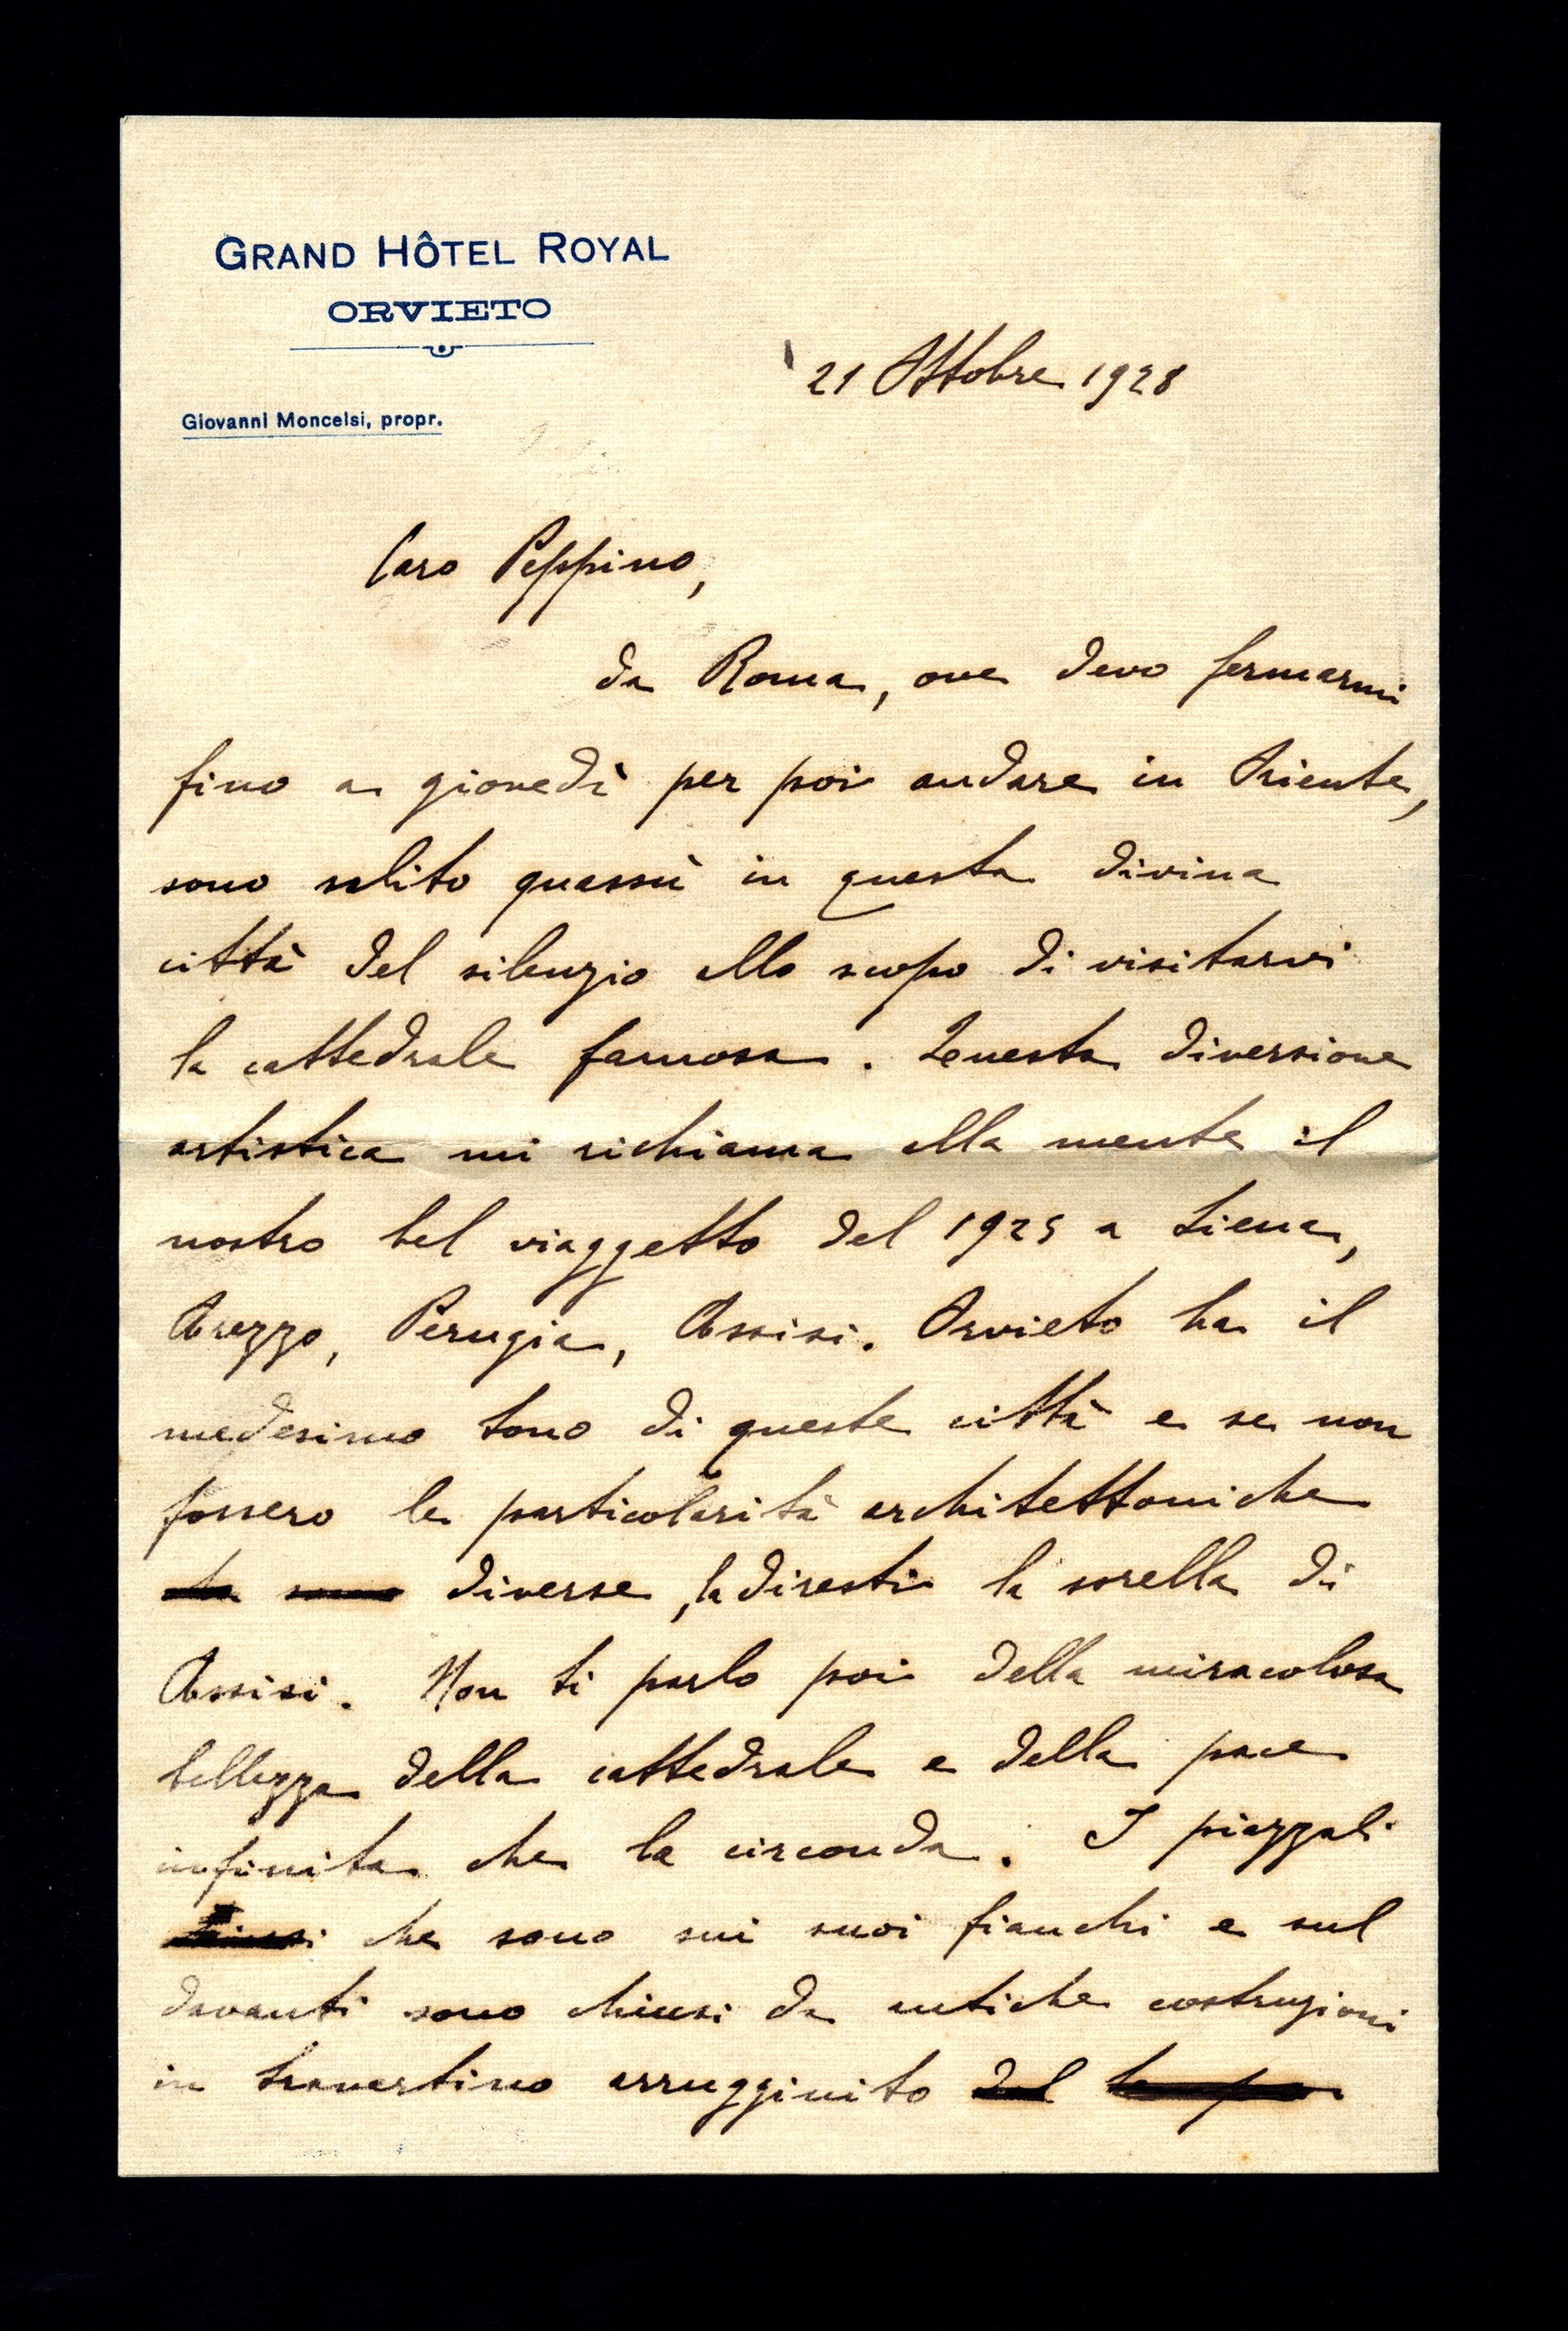 GRAND HÔTEL ROYAL
ORVIETO
Giovanni Moncelsi, propr.
21 Ottobre 1928
Caro Peppino,
da Roma, ove devo fermarmi
fino a giovedì per poi andare in Oriente,
sono salito quassù in questa divina
città del silenzio allo scopo di visitarvi
la cattedrale famosa. Questa diversione
artistica mi richiama alla mente il
nostro bel viaggetto del 1925 a Siena,
Arezzo, Perugia, Assisi. Orvieto ha il
medesimo tono di queste città e se non
fossero le particolarità architettoniche
diverse, la diresti la sorella di
Assisi. Non ti parlo poi della miracolosa
bellezza della cattedrale e della pace
infinita che la circonda. I piazzali
che sono sui suoi fianchi e sul
davanti sono chiusi da antiche costruzioni
in travertino arrugginito del tempo